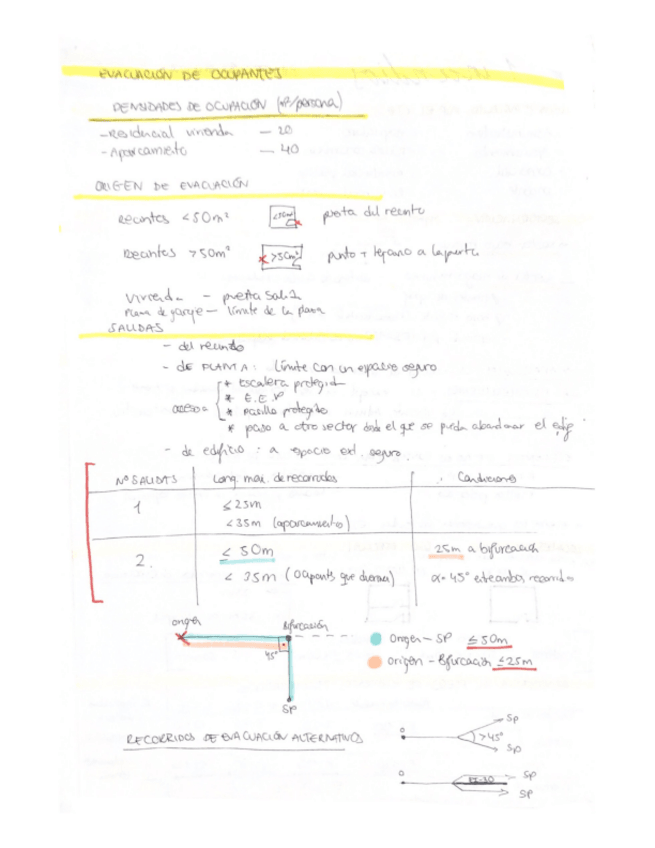 EVACUACIÓN DE OCUPANTES
DENSIDADES DE OCUPACIÓN (m²/persona)
- Residencial vivienda — 20
- Aparcamiento — 40
ORIGEN DE EVACUACIÓN
Recintos <50m² <50m² puerta del recinto
Recintos >50m² >50m² punto + lejano a la puerta
Vivienda - puerta
Plaza de garaje - límite de la plaza
SALIDAS
- del recinto
- de PLANTA: Límite con un espacio seguro
acceso a
* Escalera protegida
* E.E.V
* pasillo protegido
* paso a otro sector desde el que se pueda abandonar el edif
- de edificio: a espacio ext. seguro.
Nº SALIDAS Long. max. de recorridos Condiciones
1 ≤25m
<35m (aparcamiento)
2. < 50m 25m a bifurcación
< 35m (Ocupants que duerman) α= 45° entre ambos recorridos
origen Bifurcación
45°
SP
Origen - SP ≤50m
Origen - Bifurcación ≤25m
RECORRIDOS DE EVACUACIÓN ALTERNATIVOS
O >45° SP
SP
O EI-30 SP
SP